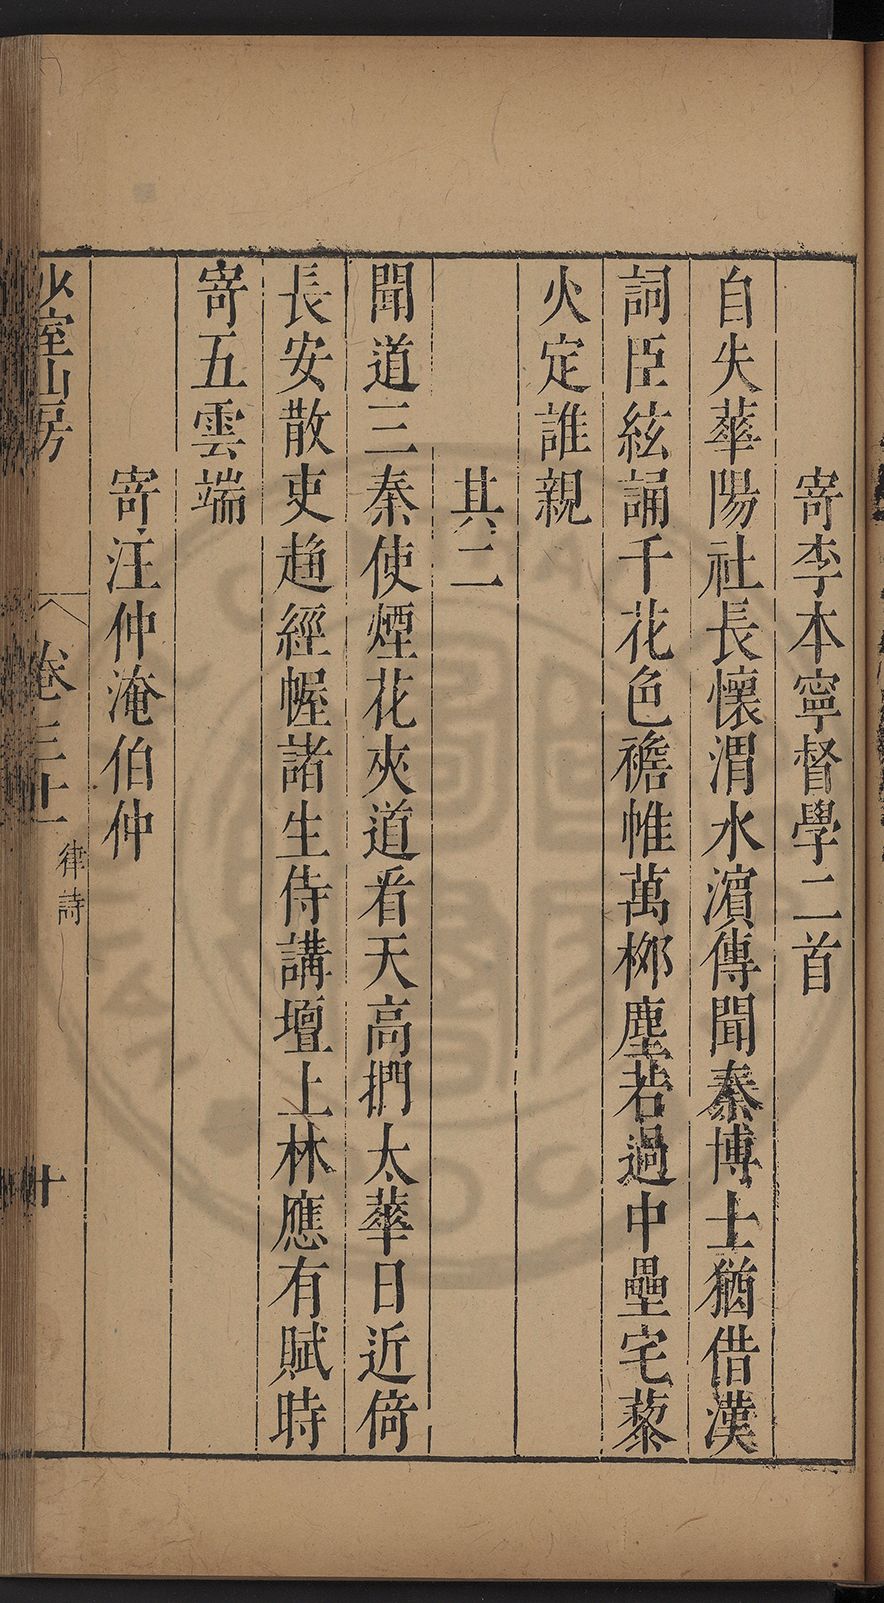 寄李本寧督學二首
自失華陽社長懷渭水濵傳聞秦博士猶借漢
詞臣絃誦千花色襜帷萬桞塵若過中壘宅藜
火定誰親
其二
聞道三秦使煙花夾道看天高捫太華日近倚
長安散吏趨經幄諸生侍講壇上林應有賦時
寄五雲端
寄汪仲淹伯仲
少室山房
卷三十
律詩
十